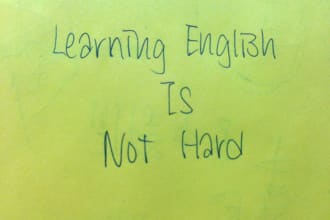 Learning English
Is
Not Hard